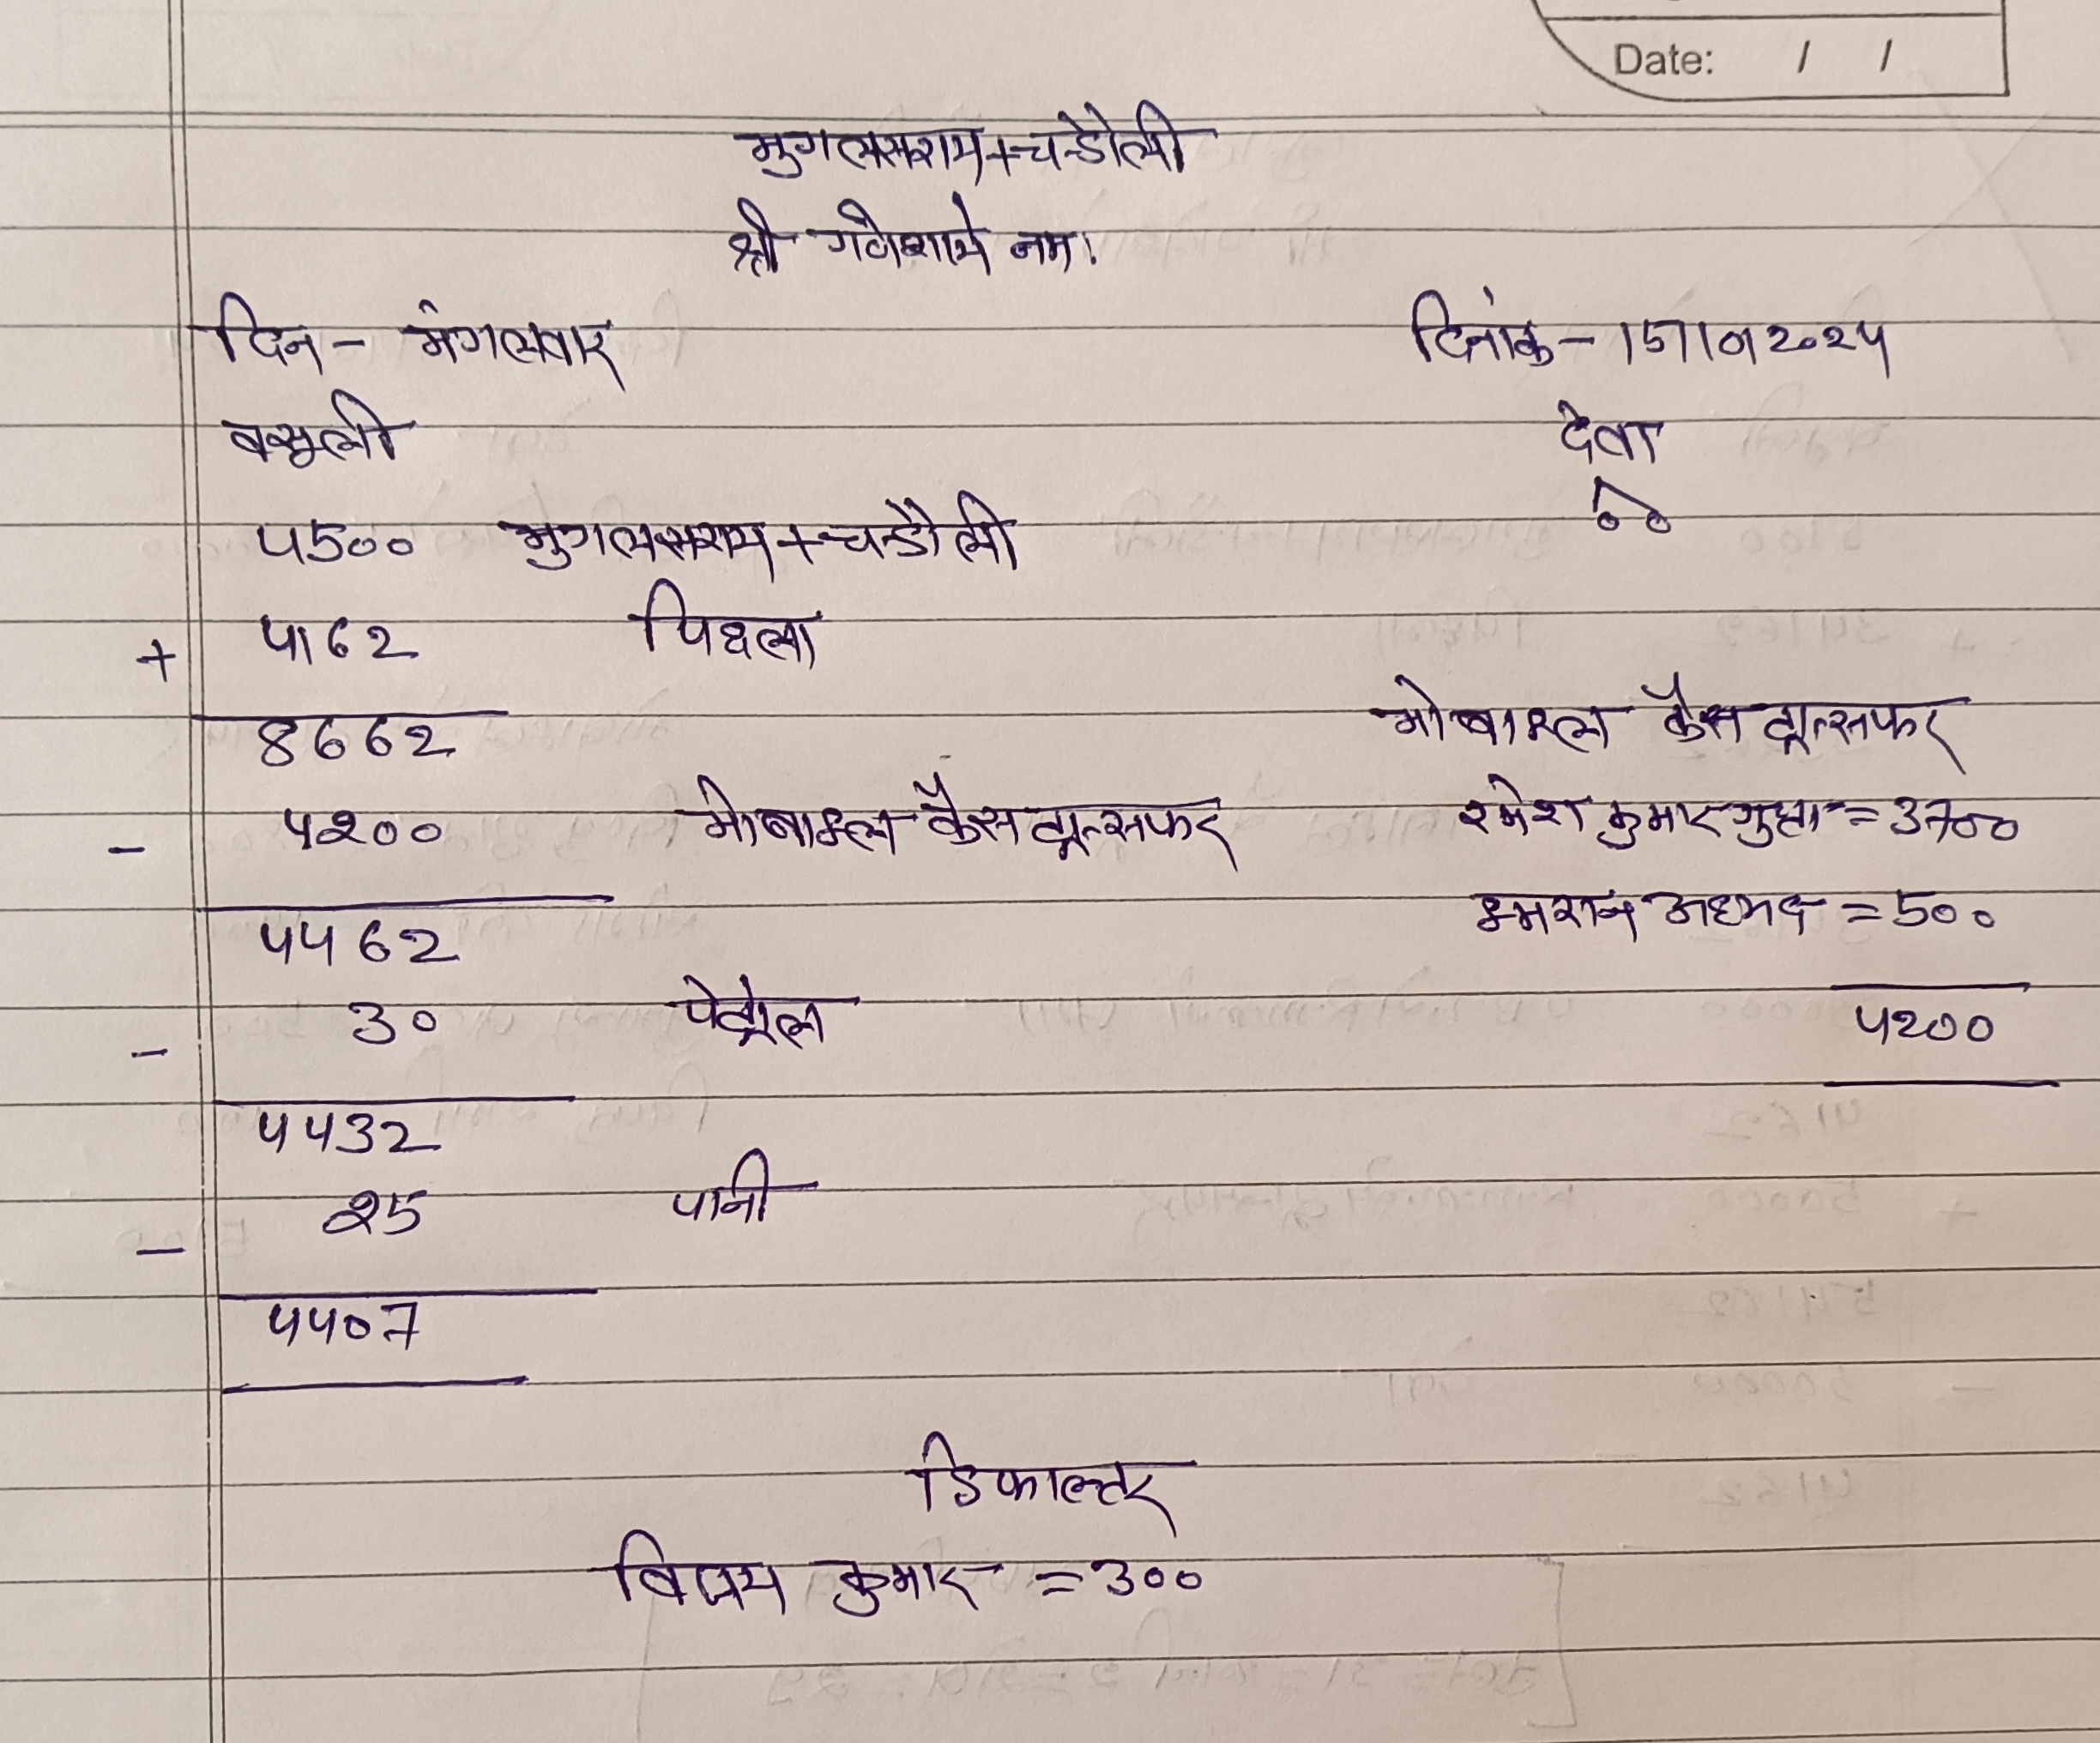 Date: / /
मुगलसराय+चन्डौली
श्री गणेशाये नमः
दिन - मंगलवार दिनांक - 15/10/2024
वसूली देवा
4500 मुगलसराय+चन्डौली 00
+ 4162 पिछला
8662 मोबाइल कैस ट्रान्सफर
- 4200 मोबाइल कैस ट्रान्सफर रमेश कुमार गुप्ता = 3700
4462 इमरान अहमद = 500
- 30 पेट्रोल 4200
4432
- 25 पानी
4407
डिफाल्टर
विजय कुमार = 300